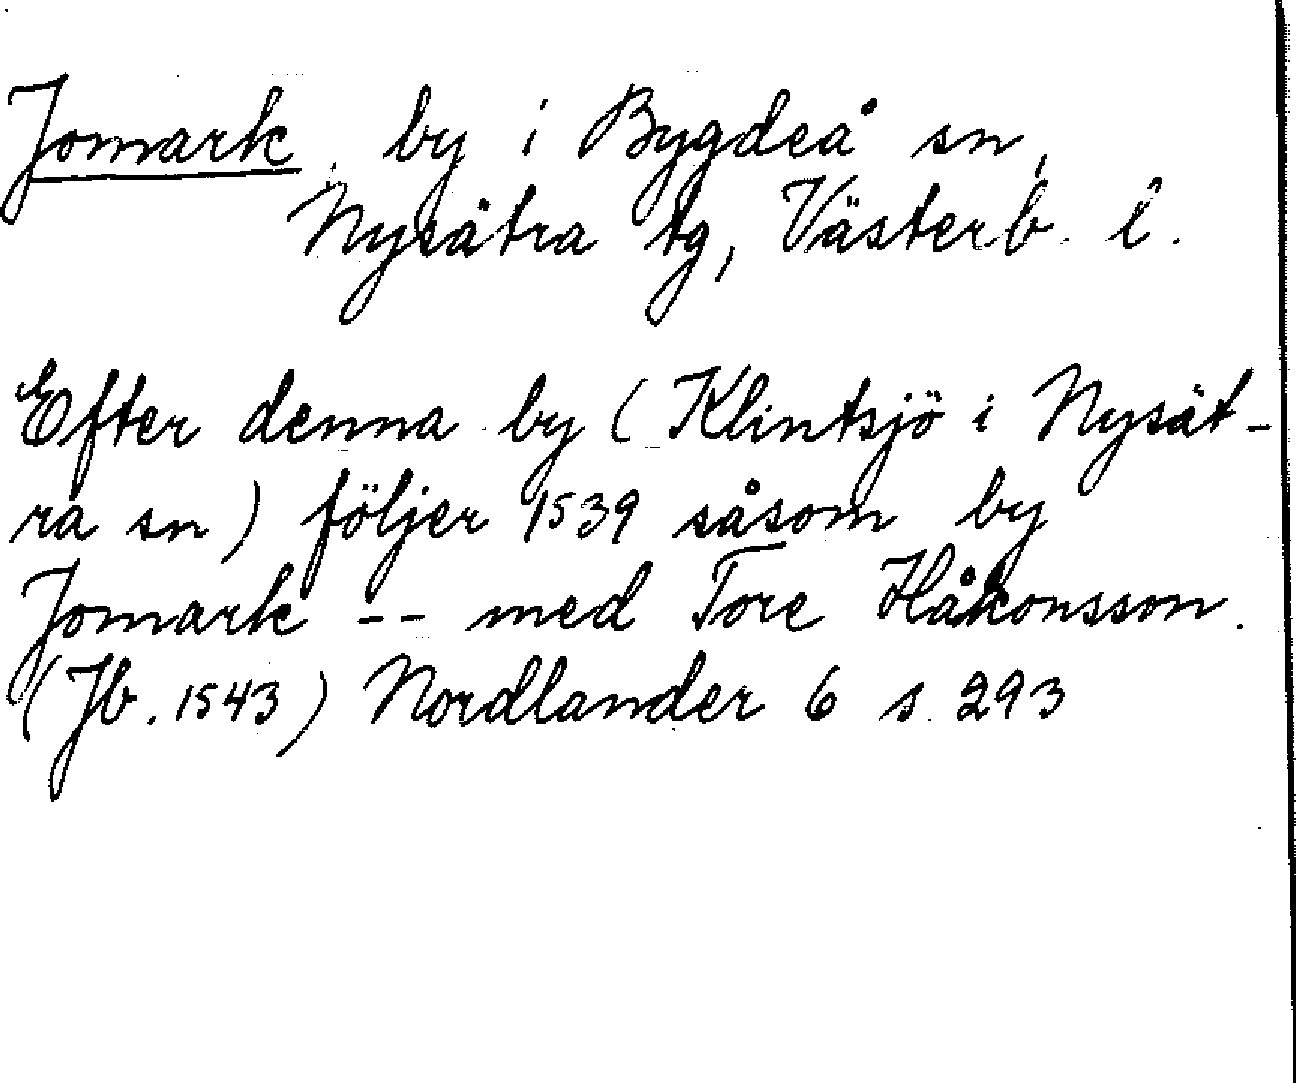 Jomark, by i Bygdeå sn,
Nysätra tg, Västerb. l.
Efter denna by (Klintsjö i Nysät-
ra sn) följer 1539 såsom by
Jomark -- med Tore Håkonsson.
(Jb. 1543) Nordlander 6 s. 293